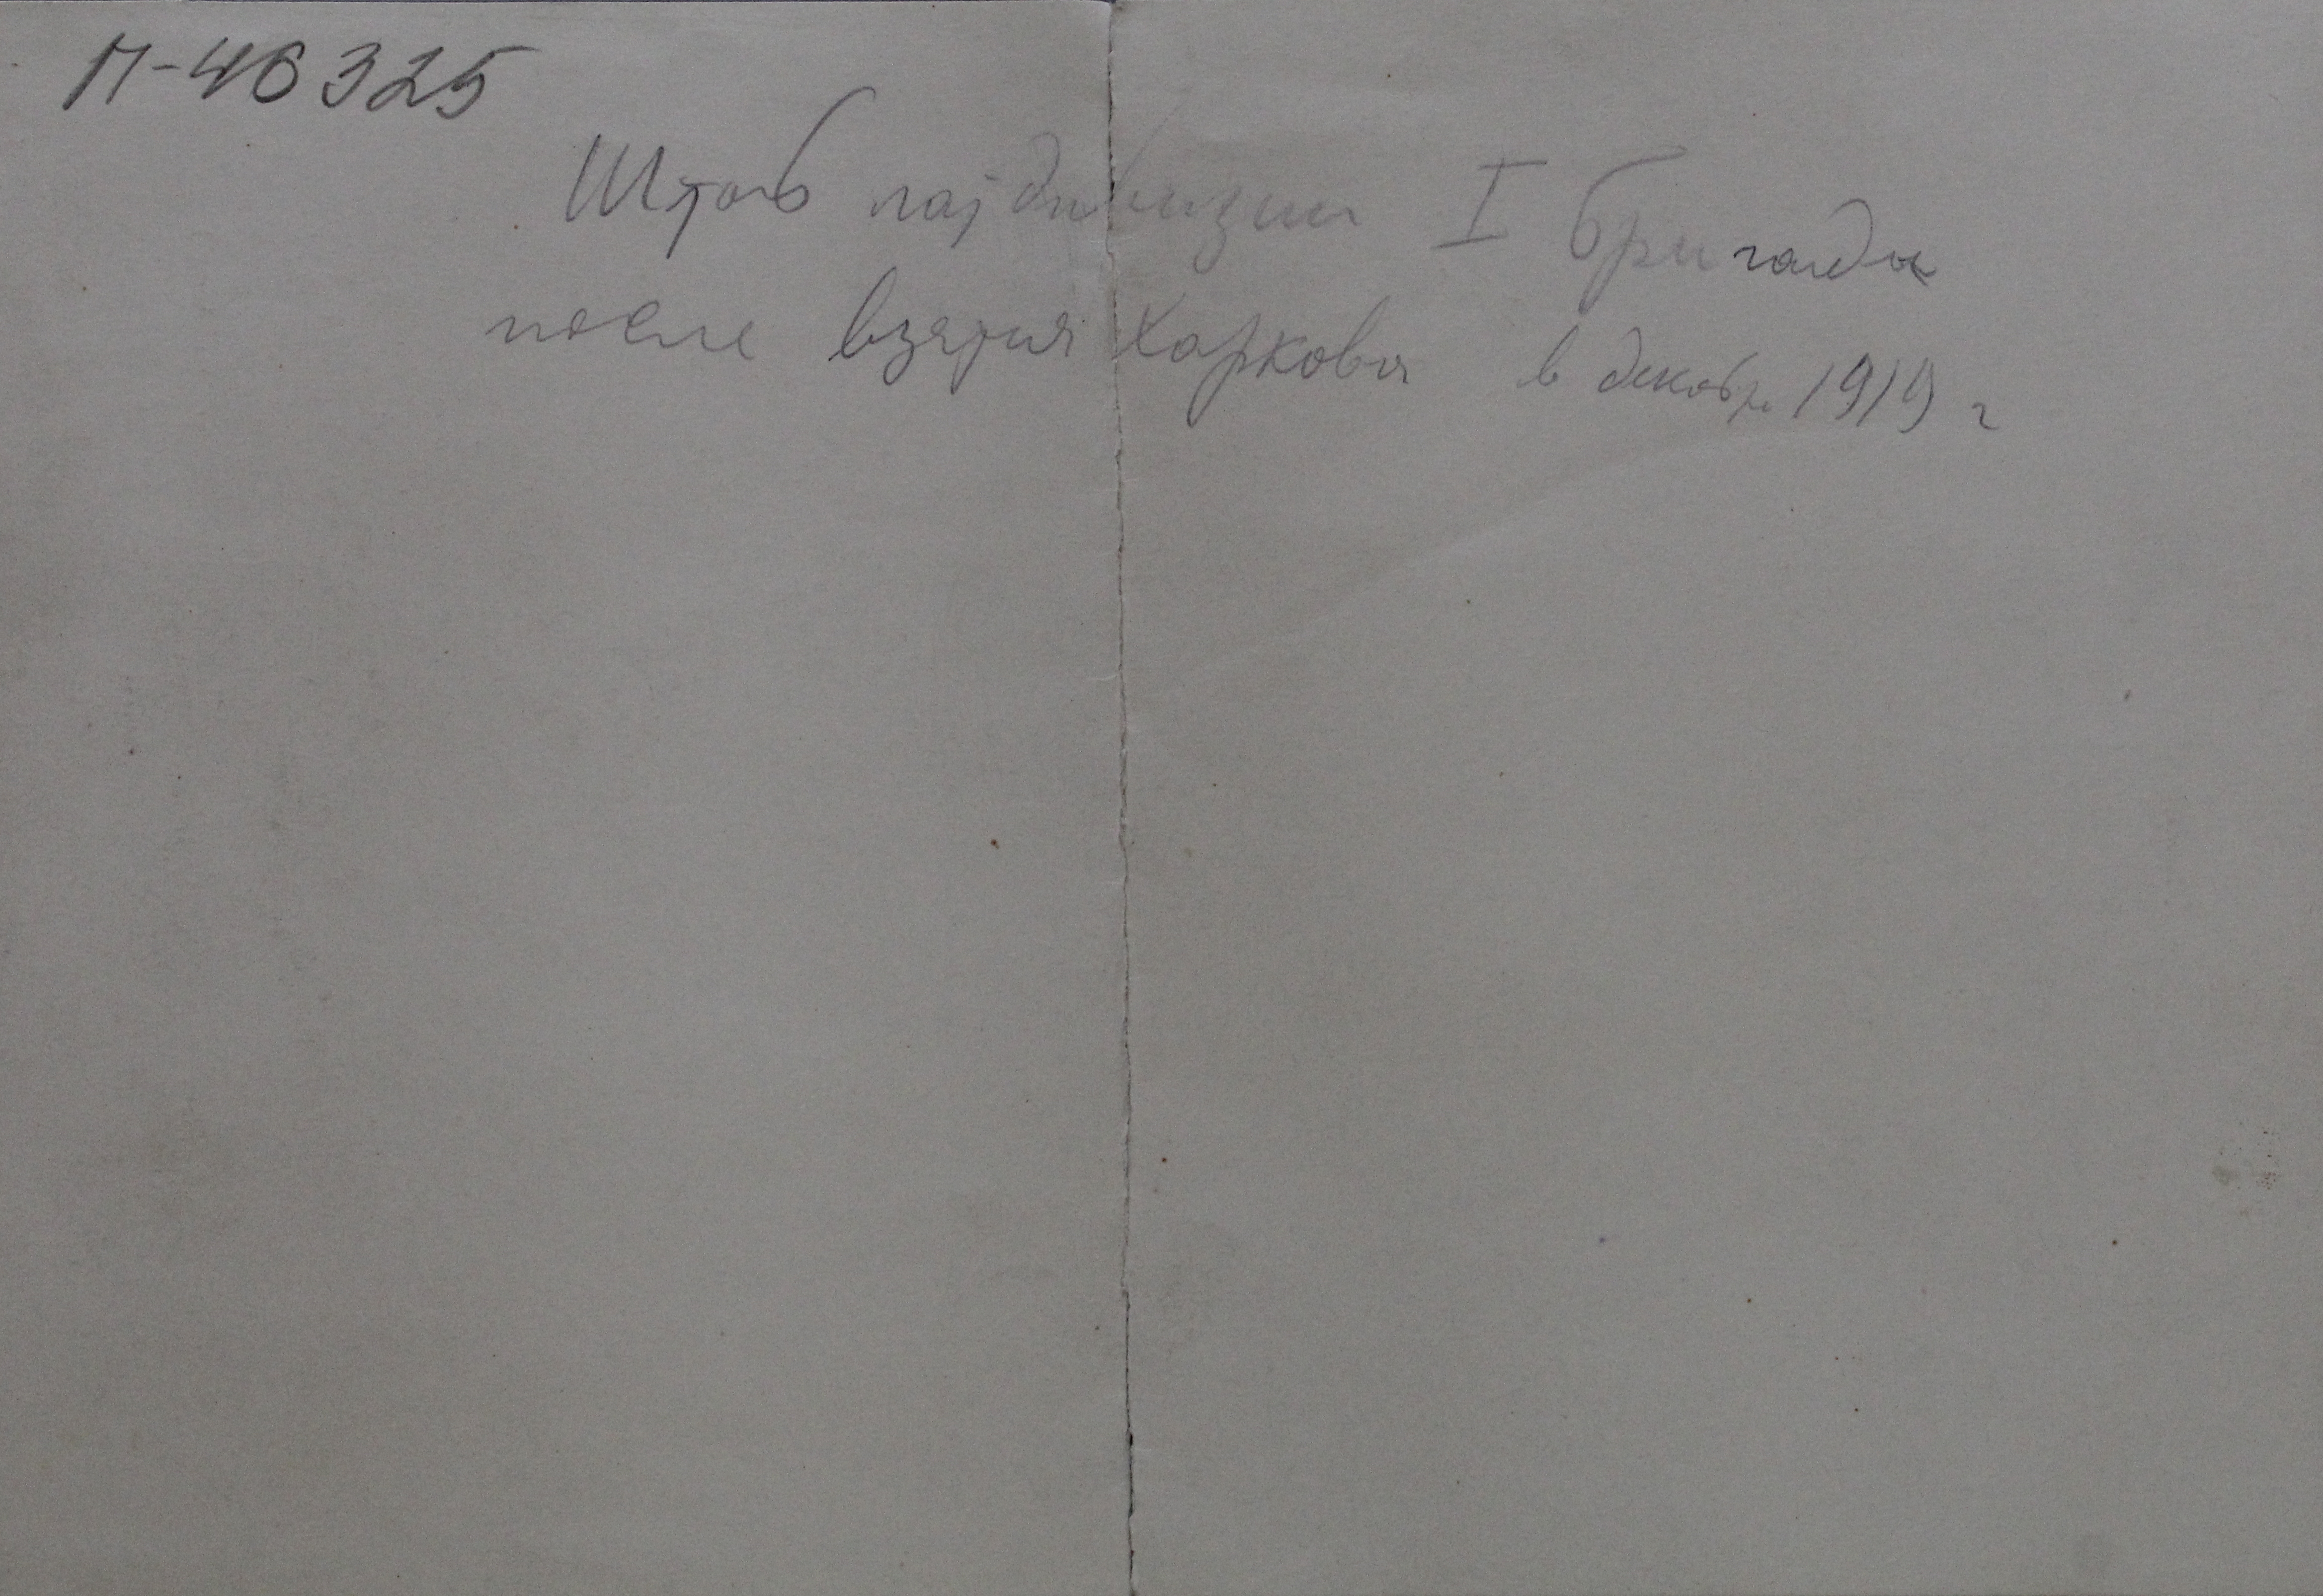 П-46325
Штаб латдивизии I бригады
после взятия Харкова в декабр. 1919 г